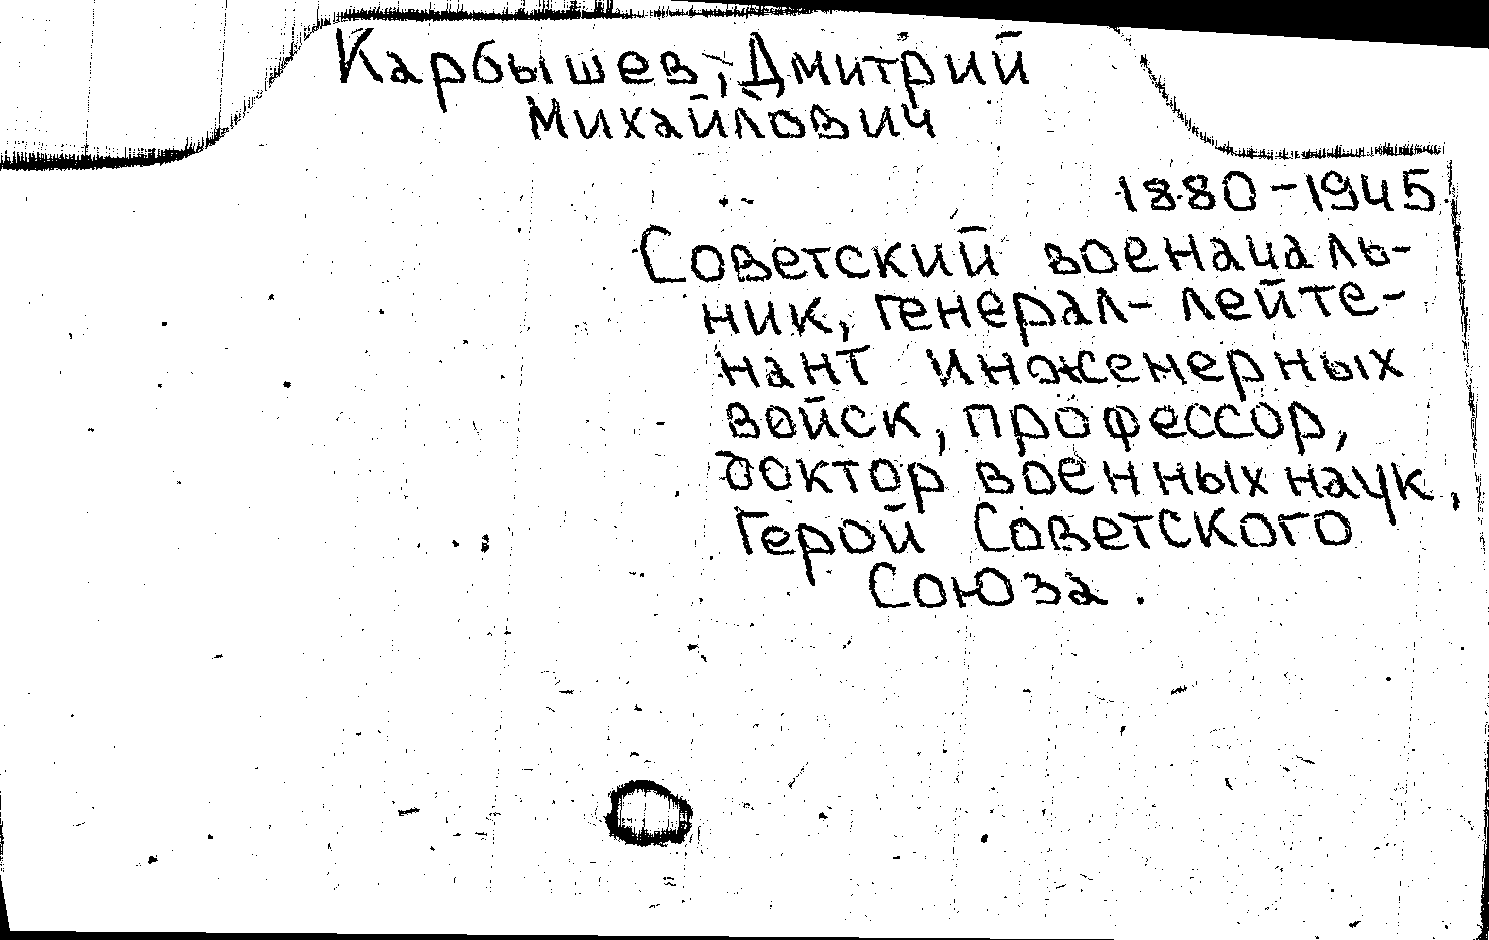 Карбышев, Дмитрий
Михайлович
1880-1945
Советский военачаль-
ник, генерал-лейте-
нант инженерных
войск, профессор,
доктор военных наук,
Герой Советского
Союза.